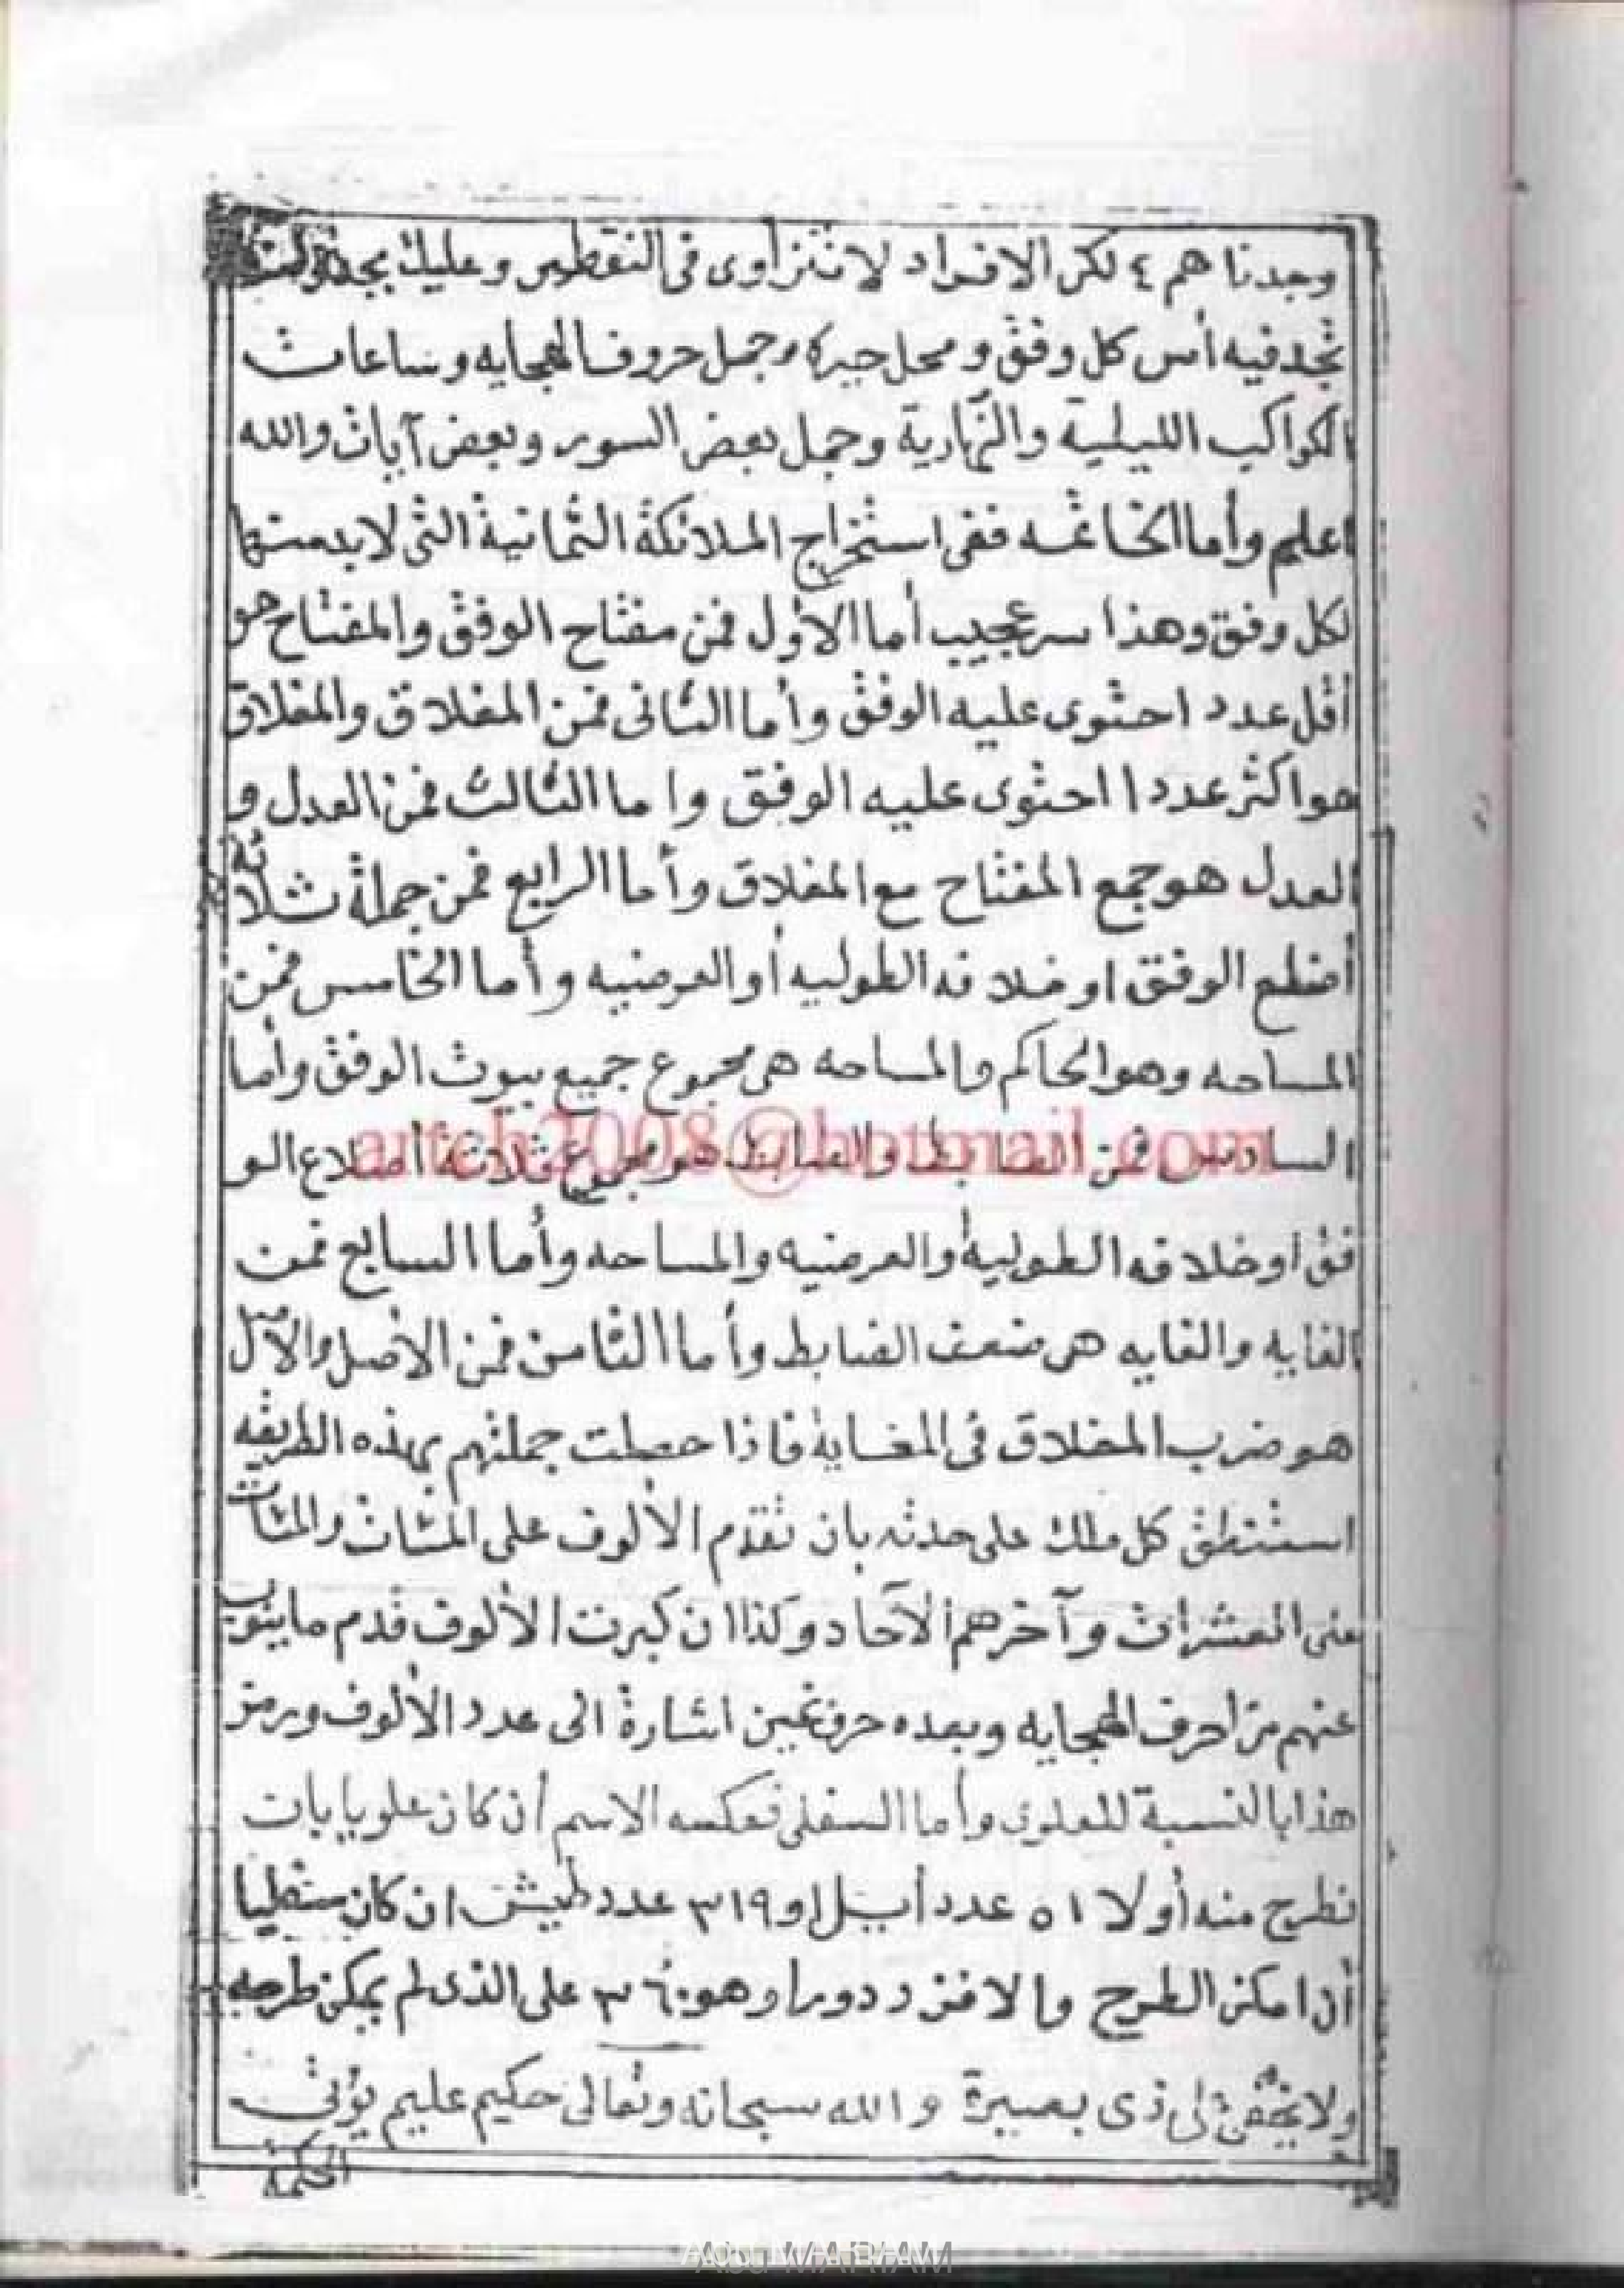 وجدنا هم ٤ لكن الافراد لا تتزاوى فى التقطير وعليك بجدول
تجد فيه أس كل وفق ومحل جبره وجمل حروف الهجايه وساعات
الكواكب الليلية والنهارية وجمل بعض السور وبعض آيات والله
اعلم وأما الخاتمه ففى استخراج الملائكة الثمانية التى لا بد منها
لكل وفق وهذا سر عجيب أما الاول فمن مفتاح الوفق والمفتاح هو
أقل عدد احتوى عليه الوفق وأما الثانى فمن المغلاق والمغلاق
هو اكثر عددا احتوى عليه الوفق واما الثالث فمن العدل و
العدل هو جمع المفتاح مع المغلاق وأما الرابع فمن جملة ثلاثة
أضلع الوفق او خلافه الطوليه أو العرضيه وأما الخامس فمن
المساحه وهو الحاكم والمساحه هى مجموع جميع بيوت الوفق وأما
السادس فمن الضابط والضابط هو مجموع ثلاثة اضلاع الو
فق او خلافه الطولية والعرضيه والمساحه وأما السابع فمن
الغايه والغايه هى ضعف الضابط وأما الثامن فمن الأصل والأصل
هو ضرب المغلاق فى المغاية فاذا حصلت جملتهم بهذه الطريقه
استنطق كل ملك على حدته بان تقدم الألوف على المئات والمئات
على العشرات وآخرهم الآحاد وكذا ان كبرت الألوف قدم ما ينوب
عنهم من احرف الهجايه وبعده حرف غين اشارة الى عدد الألوف ورمز
هذا بالنسبة للعلوى وأما السفلى فعكسه الاسم أن كان علويا بات
نطرح منه أولا ٥١ عدد أييل او ٣١٩ عدد طيش ان كان سفليا
أن امكن الطرح والا فنزد دورا وهو ٣٦٠ على الذى لم يمكن طرحه
ولا يخفى على ذى بصيرة والله سبحانه وتعالى حكيم عليم يؤتى
الحكمة
artch2008@hotmail.com
Abu MARIAM